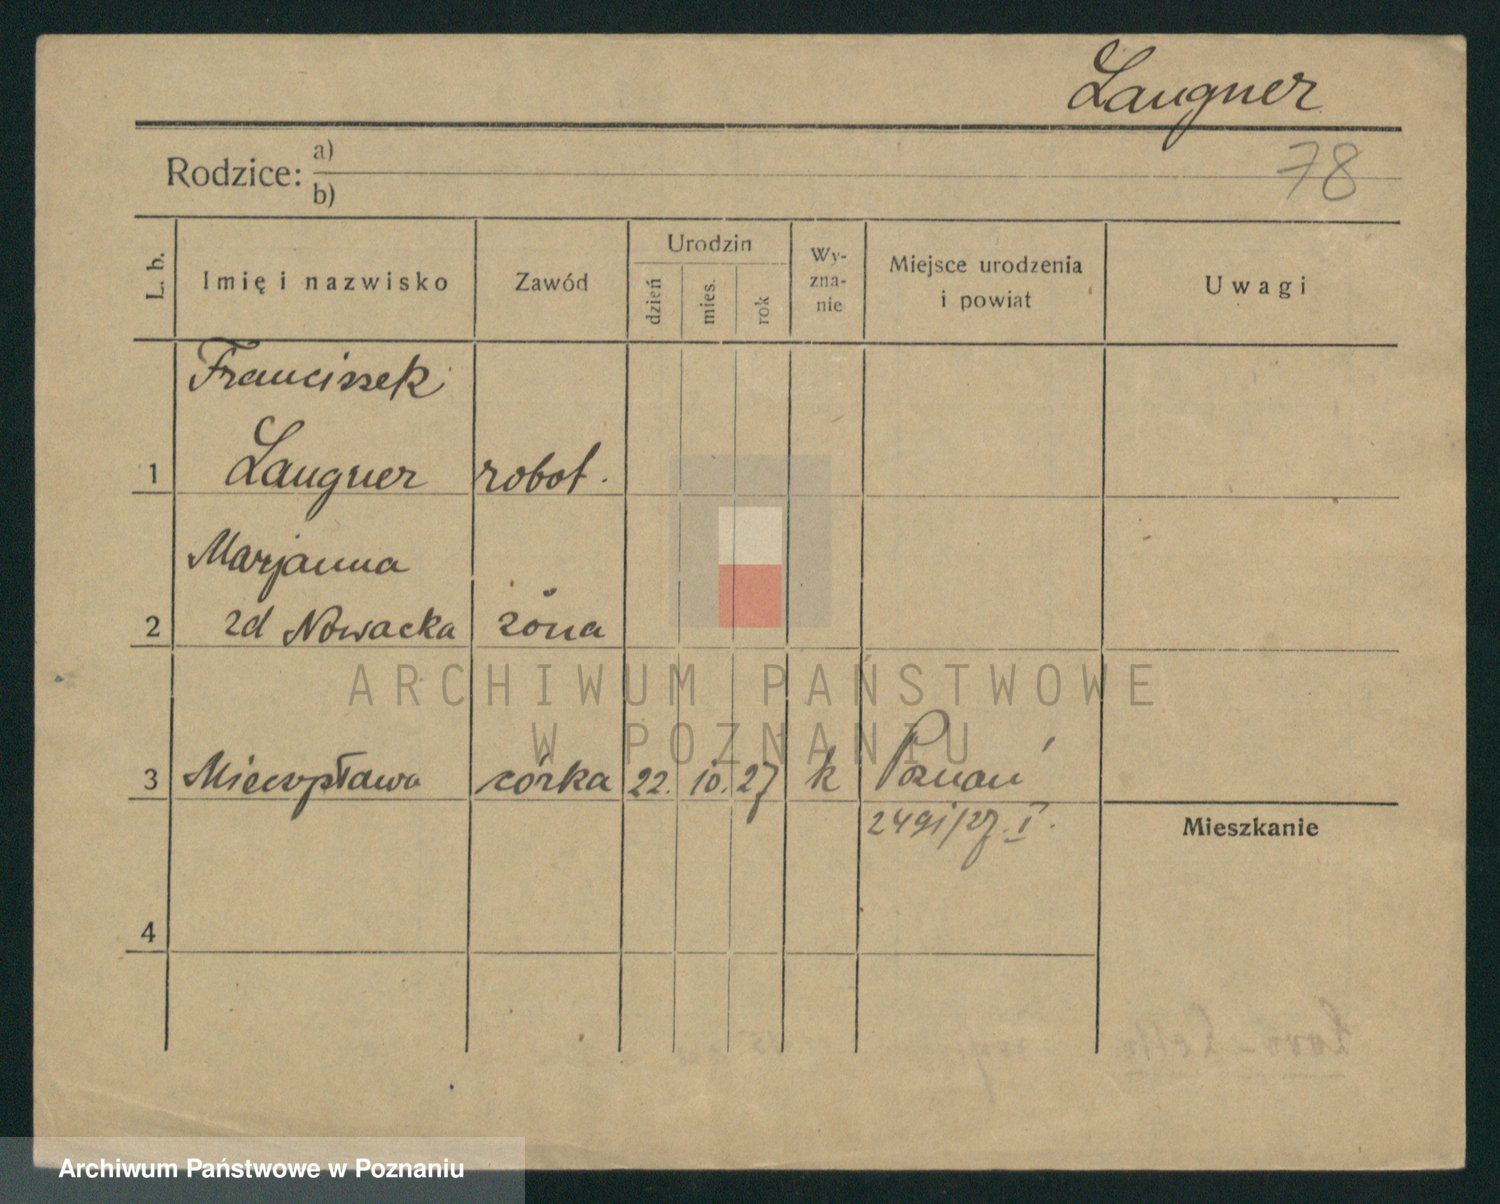 Langner
78
Rodzice: a)
b)
L. b.
Imię i nazwisko
Zawód
Urodzin
dzień
mies.
rok
Wy-
zna-
nie
Miejsce urodzenia
i powiat
Uwagi
Franciszek
1 Langner robot.
Marjanna
2 zd Nowacka żona
3 Mieczysława córka 22. 10. 27 k Poznań
2491/27. I.
Mieszkanie
4
ARCHIWUM PAŃSTWOWE
W POZNANIU
Archiwum Państwowe w Poznaniu